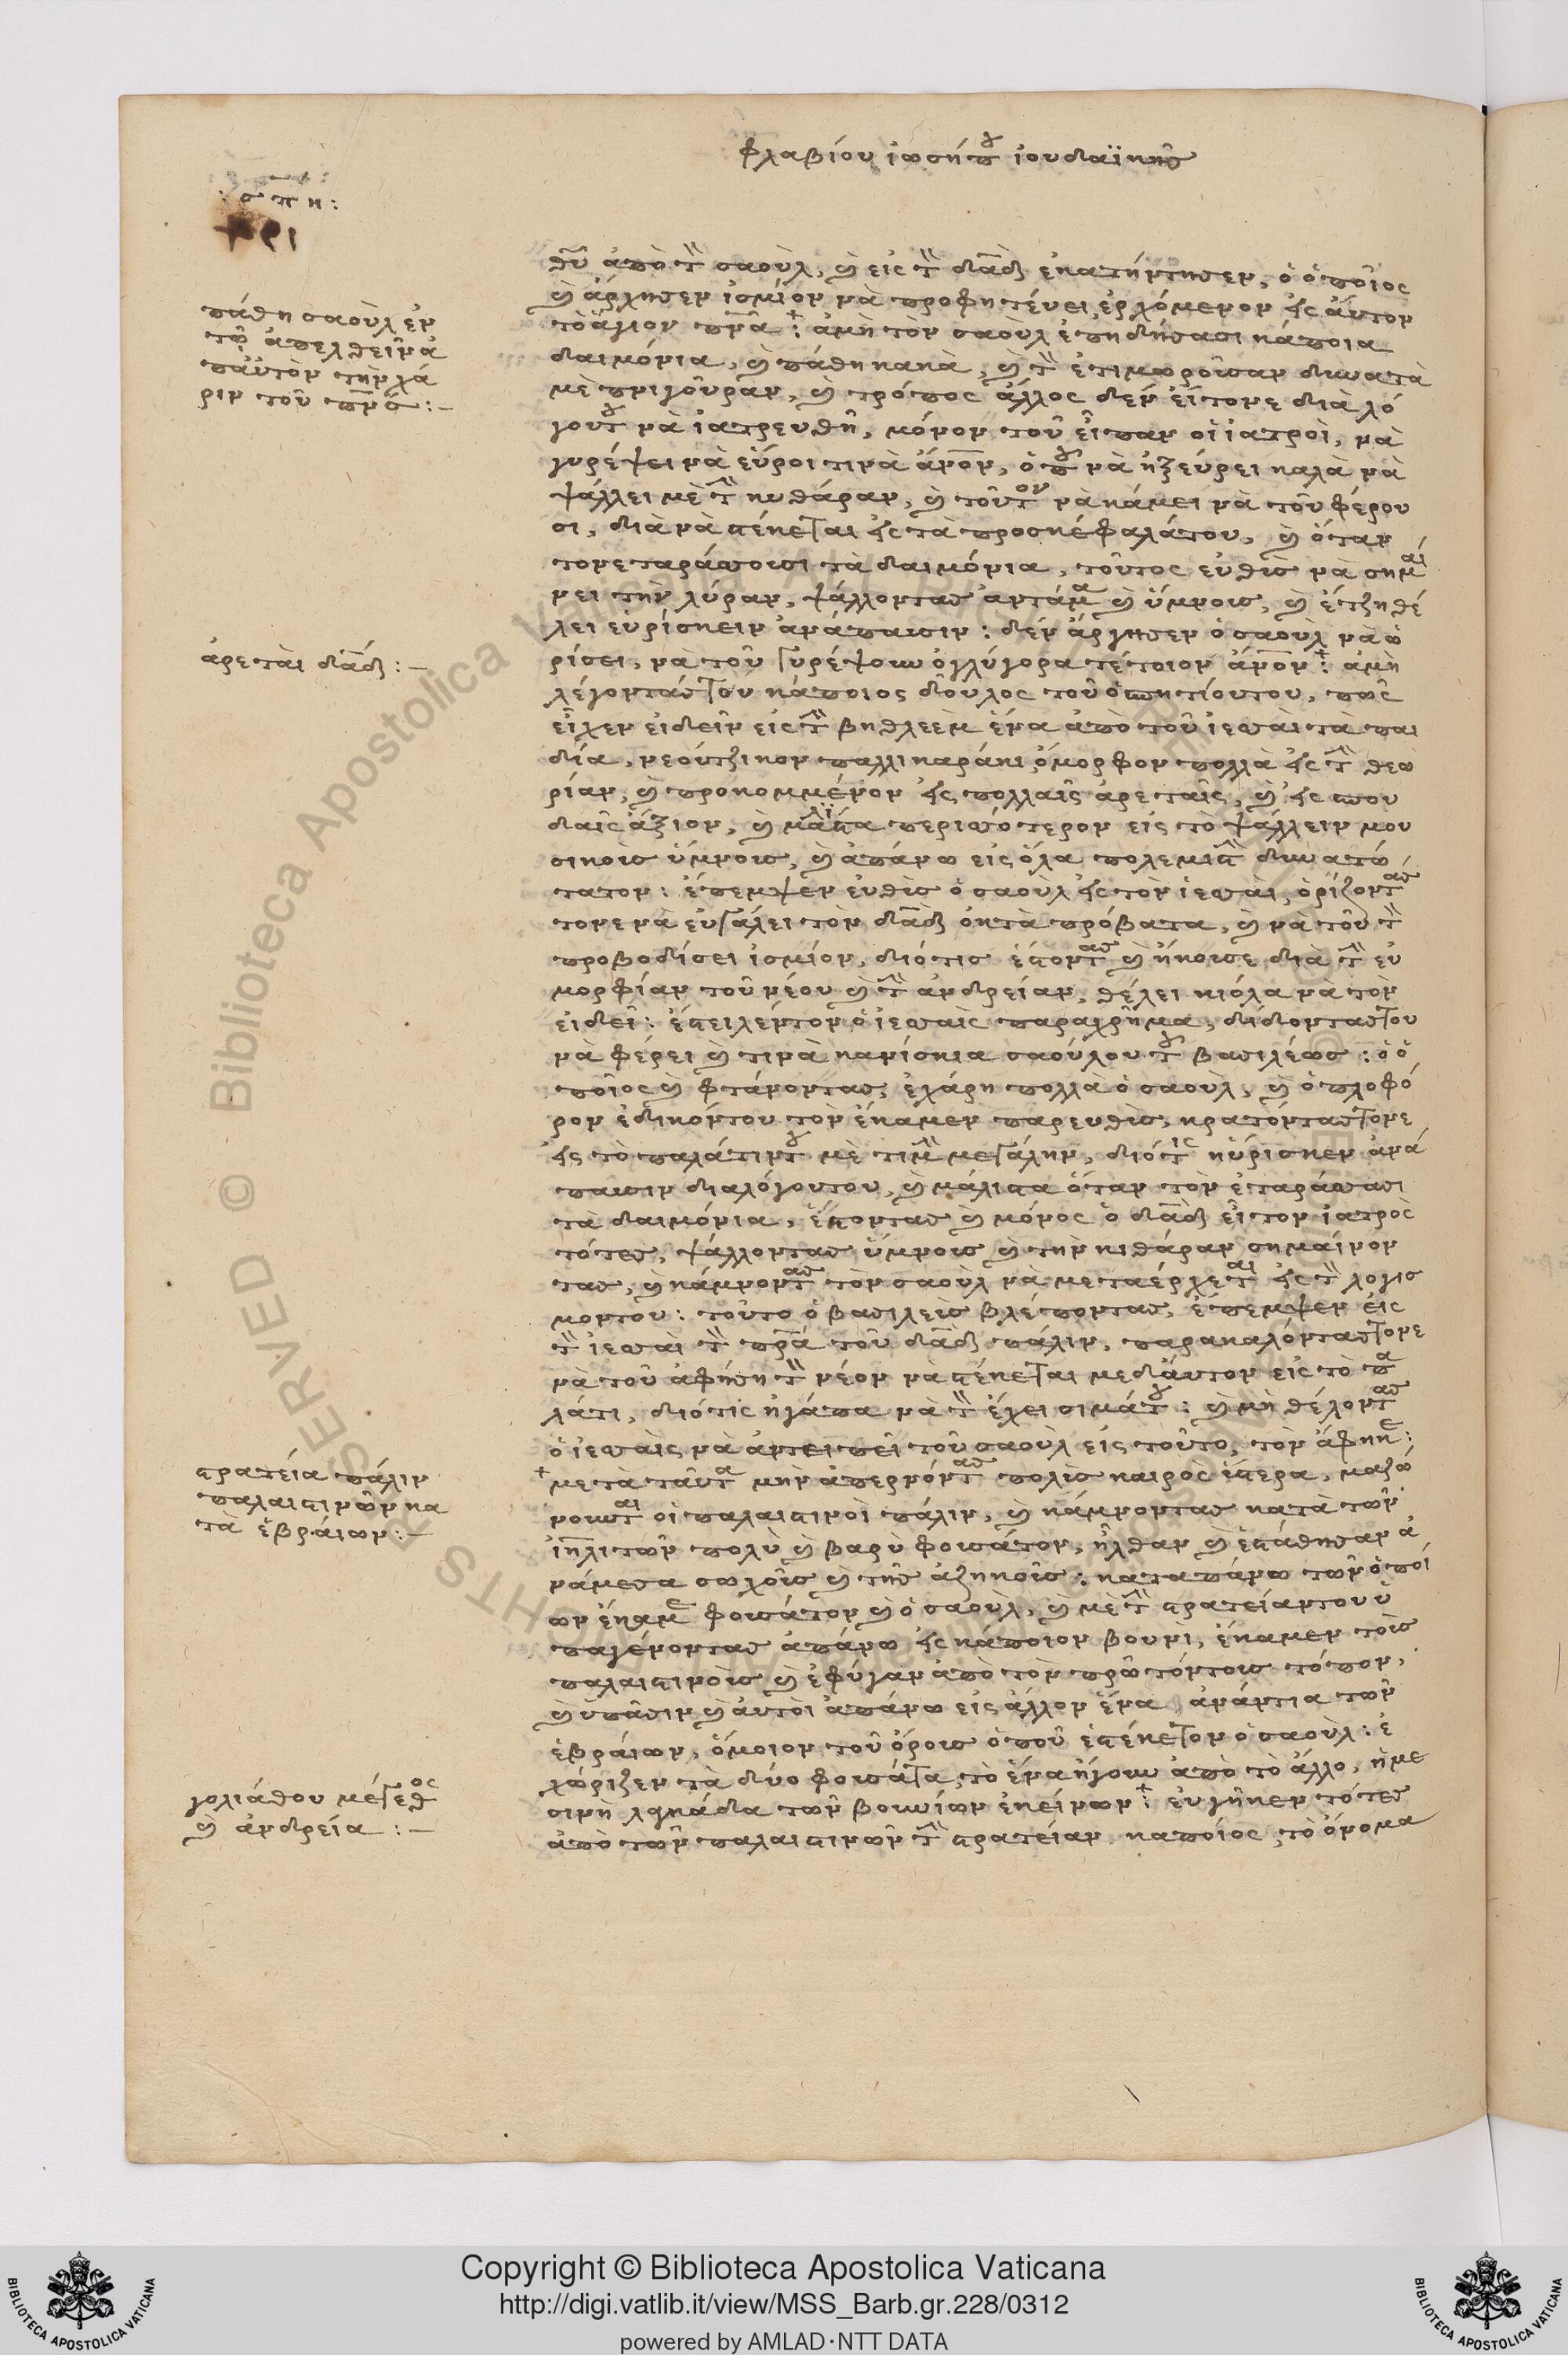 φλαβίου ἰωσήπου ἰουδαϊκῆς
: σπη :
θῦ ἀπὸ τὸν σαοὺλ, καὶ εἰς τὸν δᾱδ ἐκατήντησεν, ὁ ὁποῖος
καὶ ἄρχησεν ἰσμίον νὰ προφητεύει ἐρχόμενον εἰς ἄυτον
τὸ ἅγιον πνᾶ : ἀμὴ τὸν σαοὺλ ἐπηδήσασι κάποια
δαιμόνια, καὶ πάθη κακὰ, καὶ τὸν ἐτιμωροῦσαν δυνατὰ
μὲ πνιγοῦραν, καὶ τρόπος ἄλλος δὲν εἴτονε διὰ λό
γουτου νὰ ἰατρευθῆ, μόνον τοῦ εἶπαν οἱ ἰατροὶ, νὰ
γυρέψει νὰ εὕροι τινὰ ἄνον, ὁπου νὰ ἠξεύρει καλὰ νὰ
ψάλλει μὲ τὴν κυθάραν, καὶ τοῦτον νὰ κάμει νὰ τοῦ φέρου
σι, διὰ νὰ στέκεται εἰς τὰ προσκέφαλάτου, καὶ ὅταν
τονε ταράσσουσι τὰ δαιμόνια, τοῦτος εὐθὺς νὰ σημαί
νει τὴν λύραν, ψάλλοντας ἀντάμα καὶ ὕμνους, καὶ ἔτζη θέ
λει εὑρίσκειν ἀνάπαυσιν : δὲν ἄργησεν ὁ σαοὺλ νὰ ὁ
ρίσει, νὰ τοῦ γυρέψουν ὀγλύγορα τέτοιον ἄνον : ἀμὴ
λέγοντάςτου κάποιος δοῦλος τοῦ ὁσπητίουτου, πῶς
εἶχεν εἰδεῖν εἰς τὴν βηθλεὲμ ἕνα ἀπὸ τοῦ ἰεσσαὶ τὰ παι
δία, νεούτζικον παλλικαράκι, ὄμορφον πολλὰ εἰς τὴν θεω
ρίαν, καὶ προκομμένον εἰς πολλαῖς ἀρεταῖς, καὶ εἰς σπου
δαῖς ἄξιον, καὶ μάλιστα περισσότερον εἰς τὸ ψάλλειν μου
σικοὺς ὕμνους, καὶ ἀπάνω εἰς ὅλα πολεμιστὴν δυνατώ
τατον : ἔπεμψεν εὐθὺς ὁ σαοὺλ εἰς τὸν ἰεσσαὶ, ὁρίζοντας
τονε νὰ εὐγάλει τὸν δᾱδ ὀκτὰ πρόβατα, καὶ νὰ τοῦ τὸν
προβοδίσει ἰσμίον, διότις ἔστοντας καὶ ἤκουσε διὰ τὴν εὐ
μορφίαν τοῦ νέου καὶ τὴν ἀνδρείαν, θέλει κιόλα νὰ τὸν
εἰδεῖ : ἔστειλέντον ὁ ἰεσσαὶς παραχρῆμα, δίδοντάςτου
νὰ φέρει καὶ τινὰ κανίσκια σαούλου τοῦ βασιλέως : ὁ ὁ
ποῖος καὶ φτάνοντας, ἐχάρη πολλὰ ὁ σαοὺλ, καὶ ὁπλοφό
ρον ἐδικόντου τὸν ἔκαμεν παρευθὺς, κρατόντάςτονε
εἰς τὸ παλάτιντου μὲ τιμὴν μεγάλην, διότις ηὕρισκεν ἀνά
παυσιν διαλόγουτου, καὶ μάλιστα ὅταν τὸν ἐταράσσασι
τὰ δαιμόνια, ἔστοντας καὶ μόνος ὁ δᾱδ εἶτον ἰατρὸς
τότες, ψάλλοντας ὕμνους καὶ τὴν κιθάραν σημαίνον
τας, καὶ κάμνοντας τὸν σαοὺλ νὰ μεταέρχεται εἰς τὸν λογισ
μόντου : τοῦτο ὁ βασιλεὺς βλέποντας, ἔπεμψεν εἰς
τὸν ἰεσσαὶ τὸν πρᾱ τοῦ δᾱδ πάλιν, παρακαλόντάςτονε
νὰ τοῦ ἀφήση τὸν νέον νὰ στέκεται μεδάυτον εἰς τὸ πα
λάτι, διότις ἠγάπα νὰ τὸν ἔχει σιμάτου : καὶ μὴ θέλοντας
ὁ ἰεσσαὶς νὰ ἀντειπεῖ τοῦ σαοὺλ εἰς τοῦτο, τὸν ἄφηκε :
μετὰ ταῦτα μὴν ἀπερνόντας πολὺς καιρὸς ὕστερα, μαζώ
νουνται οἱ παλαιστινοὶ πάλιν, καὶ κάμνοντας κατὰ τῶν
ἰηλιτῶν πολὺ καὶ βαρὺ φουσάτον, ἦλθαν καὶ ἐστάθησαν ἀ
νάμεσα σωχοῦς καὶ τῆς ἀζηκοῦς : καταπάνω τῶν ὁποί
ων ἔκαμε φουσάτον καὶ ὁ σαοὺλ, καὶ μὲ τὴν στρατείαντου ὑ
παγένοντας ἀπάνω εἰς κάποιον βουνὶ, ἔκαμεν τοὺς
παλαιστινοὺς καὶ ἐφύγαν ἀπὸ τὸν πρῶτόντους τόπον,
καὶ ὑπᾶσιν καὶ ἀυτοὶ ἀπάνω εἰς ἄλλον ἕνα ἀνάντια τῶν
ἑβραίων, ὅμοιον τοῦ ὄρους ὁποῦ ἐστέκετον ὁ σαοὺλ : ἐ
χώριζεν τὰ δύο φουσάτα, τὸ ἕνα ἤγουν ἀπὸ τὸ ἄλλο, ἡ με
σινὴ λακκάδα τῶν βουνίων ἐκείνων : εὐγῆκεν τότες
ἀπὸ τῶν παλαιστινῶν τὴν στρατείαν καποίος, τὸ ὄνομα
πάθη σαοὺλ ἐν
τῶ ἀπελθεῖν ἀ
πἀυτὸν τὴν χά
ριν τοῦ πνς :-
ἀρεταὶ δᾱδ :-
στρατεία πάλιν
παλαιστινῶν κα
τὰ ἑβραίων :-
γολιάθου μέγεθος
καὶ ἀνδρεία :-
Copyright © Biblioteca Apostolica Vaticana
http://digi.vatlib.it/view/MSS_Barb.gr.228/0312
powered by AMLAD·NTT DATA
BIBLIOTECA APOSTOLICA VATICANA
BIBLIOTECA APOSTOLICA VATICANA